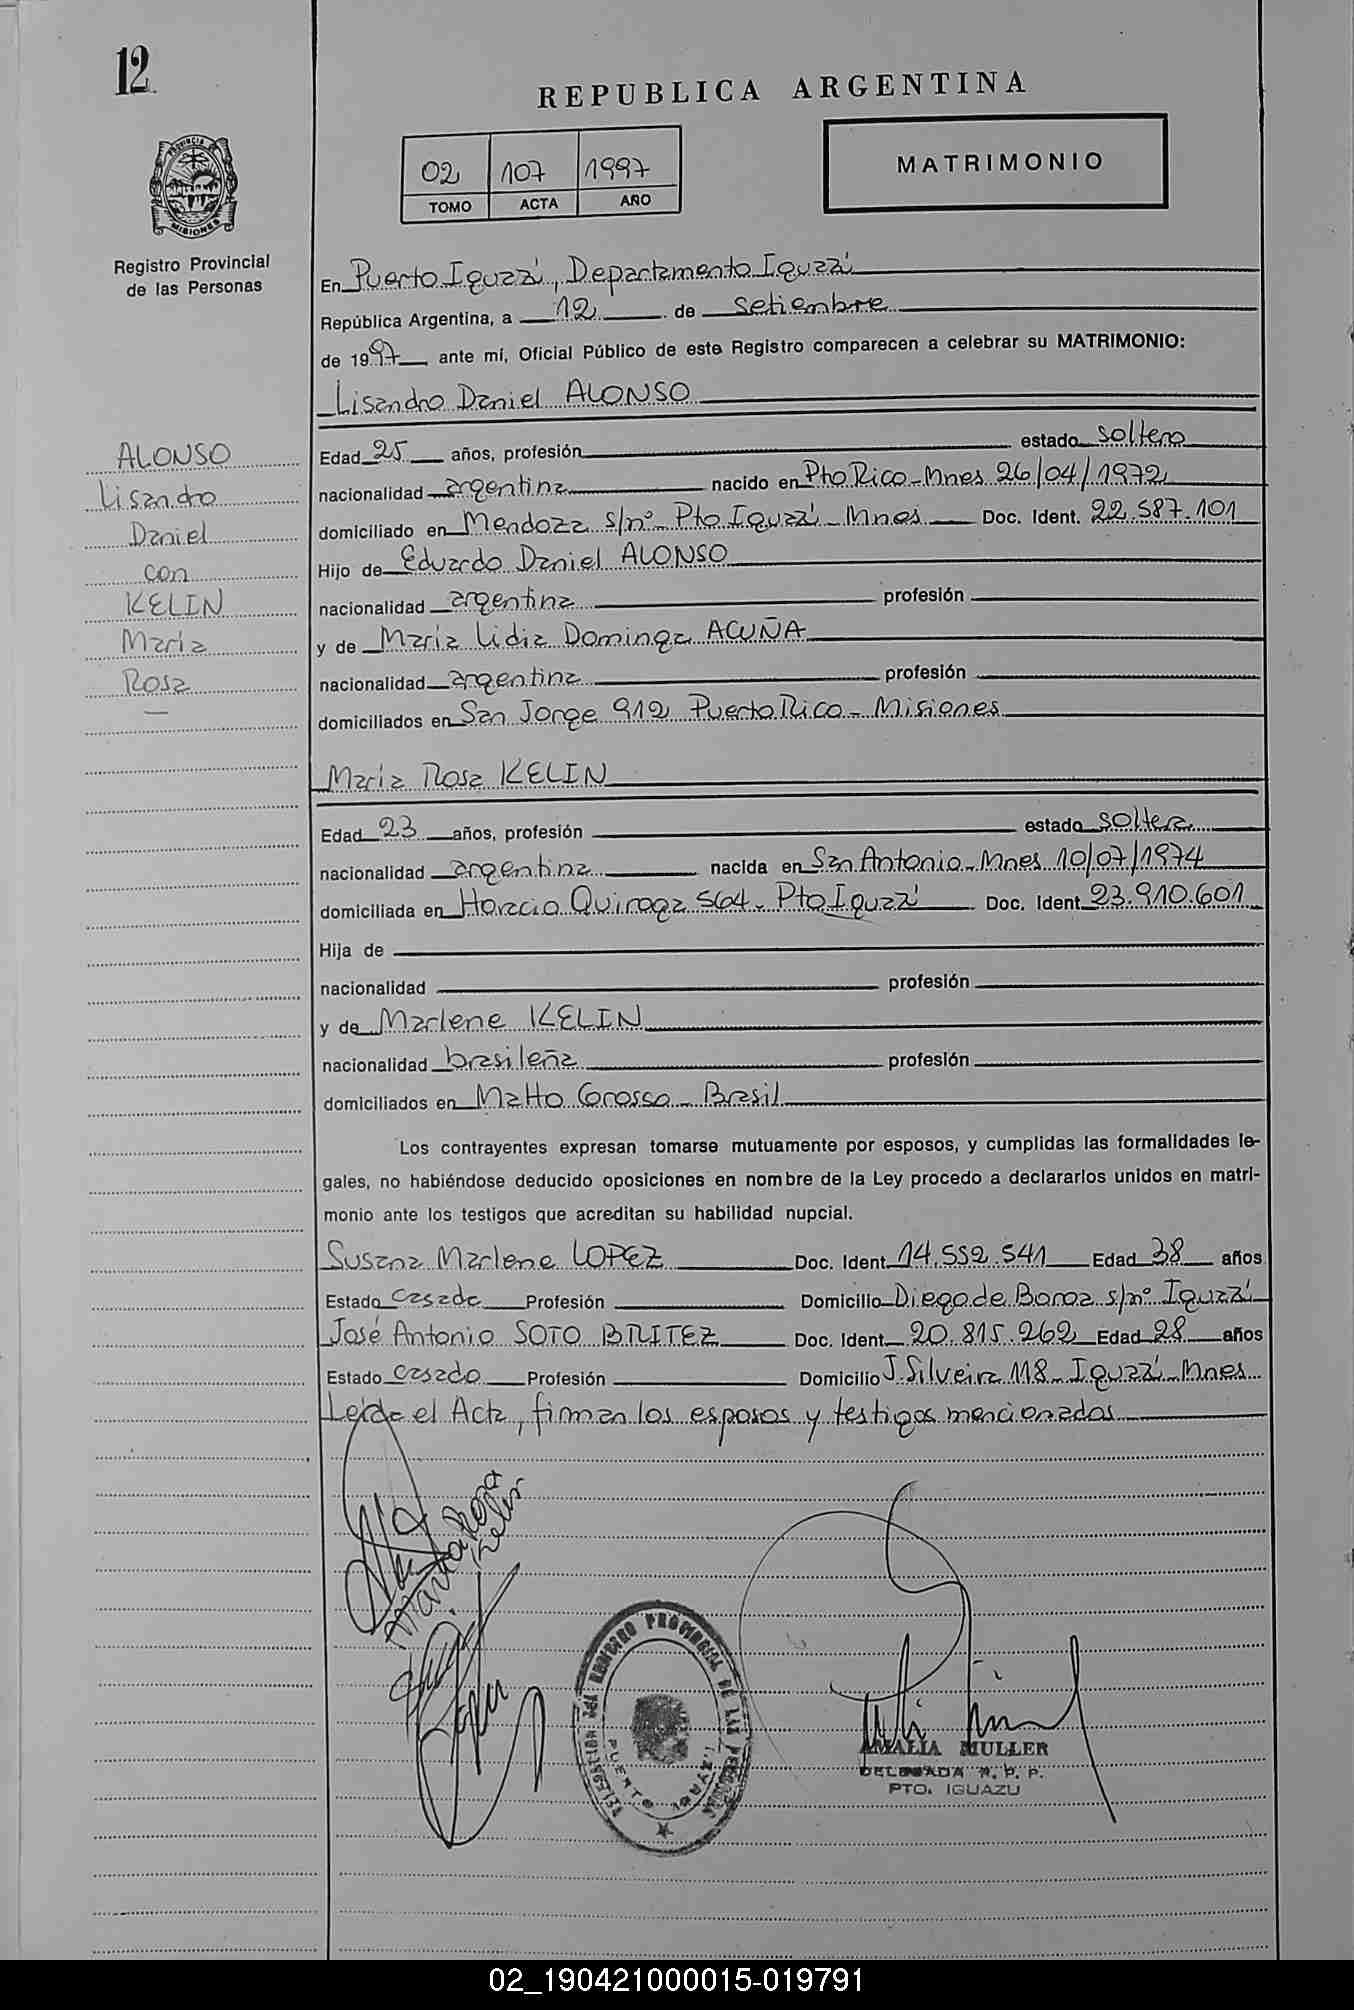 12
REPUBLICA ARGENTINA
02 107 1997
TOMO ACTA AÑO
MATRIMONIO
PROVINCIA DE
MISIONES
Registro Provincial
de las Personas
En Puerto Iguazú, Departamento Iguazú
República Argentina, a 12 de setiembre
de 1997 ante mí, Oficial Público de este Registro comparecen a celebrar su MATRIMONIO:
Lisandro Daniel ALONSO
ALONSO
Lisandro
Daniel
con
KELIN
María
Rosa
Edad 25 años, profesión estado soltero
nacionalidad argentina nacido en Pto Rico - Mnes 26/04/1972
domiciliado en Mendoza s/nº - Pto Iguazú - Mnes Doc. Ident. 22.587.101
Hijo de Eduardo Daniel ALONSO
nacionalidad argentina profesión
y de María Lidia Dominga ACUÑA
nacionalidad argentina profesión
domiciliados en San Jorge 912 Puerto Rico - Misiones
María Rosa KELIN
Edad 23 años, profesión estado soltera
nacionalidad argentina nacida en San Antonio - Mnes 10/07/1974
domiciliada en Horacio Quiroga 564 - Pto Iguazú Doc. Ident. 23.910.601
Hija de
nacionalidad profesión
y de Marlene KELIN
nacionalidad brasileña profesión
domiciliados en Matto Grosso - Brasil
Los contrayentes expresan tomarse mutuamente por esposos, y cumplidas las formalidades le-
gales, no habiéndose deducido oposiciones en nombre de la Ley procedo a declararlos unidos en matri-
monio ante los testigos que acreditan su habilidad nupcial.
Susana Marlene LOPEZ Doc. Ident. 14.552.541 Edad 38 años
Estado casada Profesión Domicilio Diego de Boroa s/nº Iguazú
José Antonio SOTO BRITEZ Doc. Ident. 20.815.262 Edad 28 años
Estado casado Profesión Domicilio J. Silveira 118 - Iguazú - Mnes
Leída el Acta, firman los esposos y testigos mencionados
María Rosa
Kelin
DELEGACION DEL REGISTRO PROVINCIAL DE LAS PERSONAS
PUERTO IGUAZU
AMALIA MULLER
DELEGADA R. P. P.
PTO. IGUAZU
02_190421000015-019791